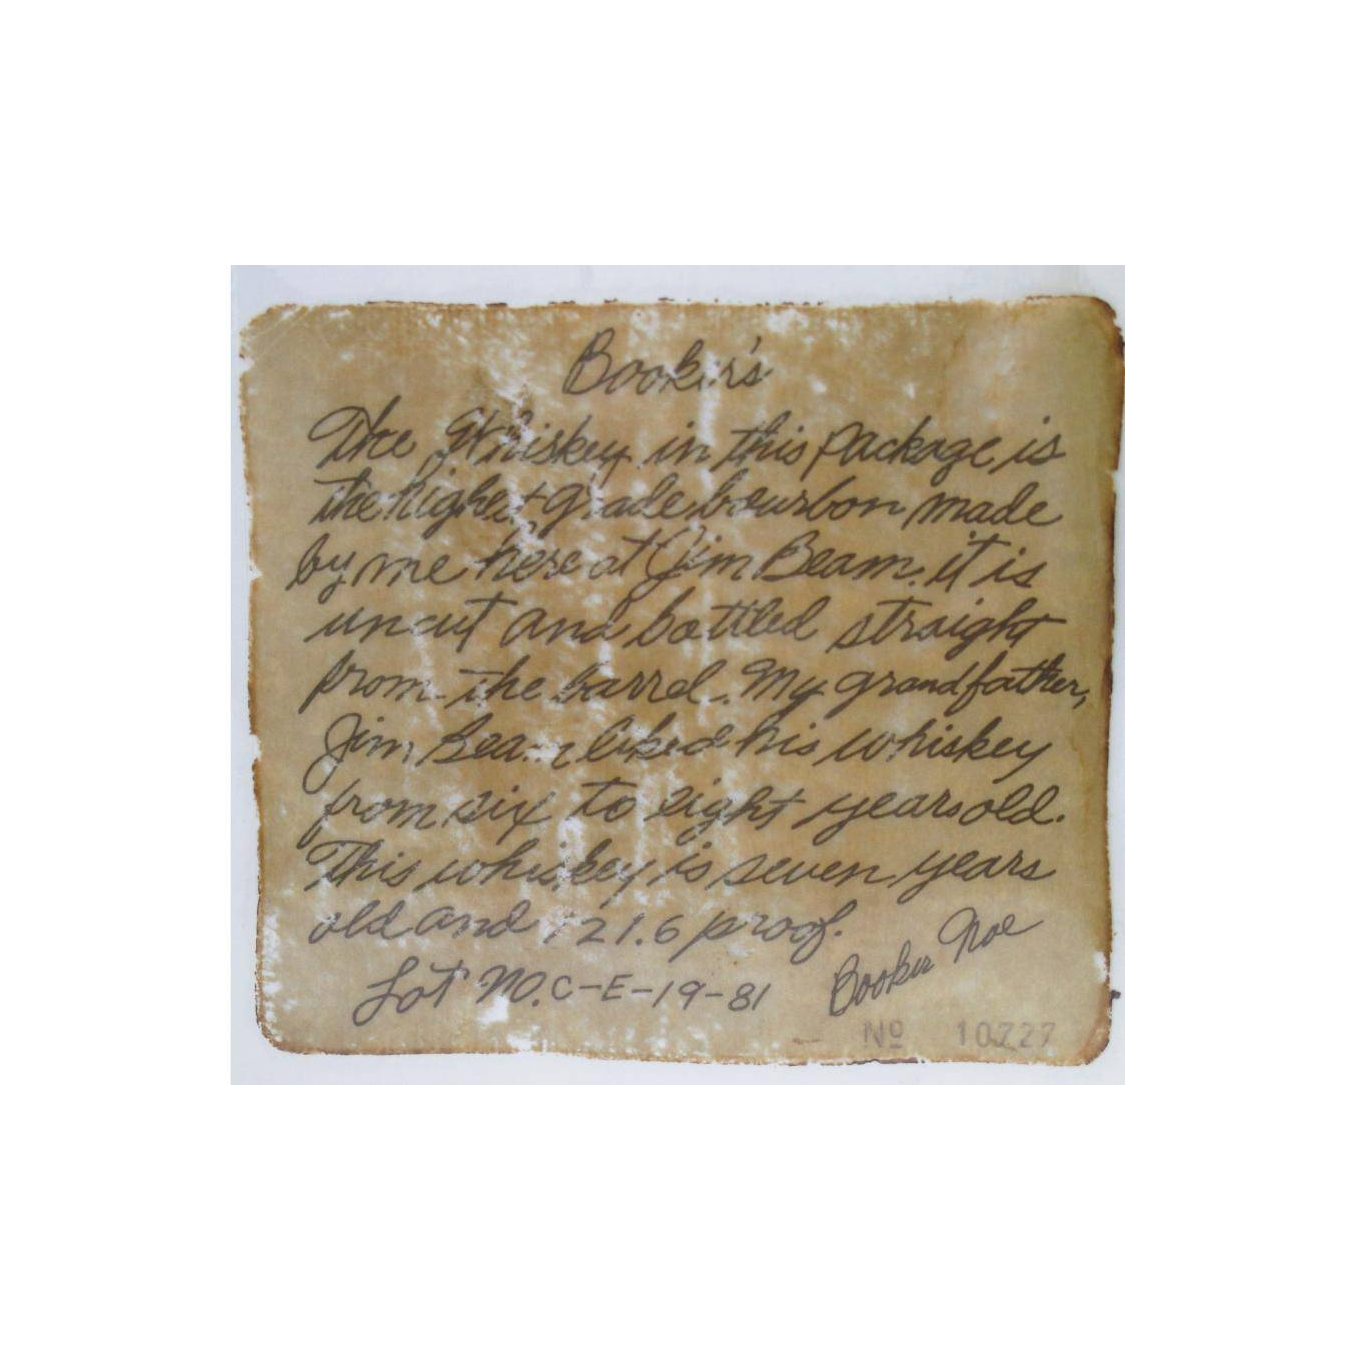 Booker's
The Whiskey in this package is
the highest grade bourbon made
by me here at Jim Beam. it is
uncut and bottled straight
from the barrel. My grandfather,
Jim Beam liked his whiskey
from six to eight years old.
This whiskey is seven years
old and 121.6 proof.
Lot NO. C-E-19-81
Booker Noe
Nº 10227